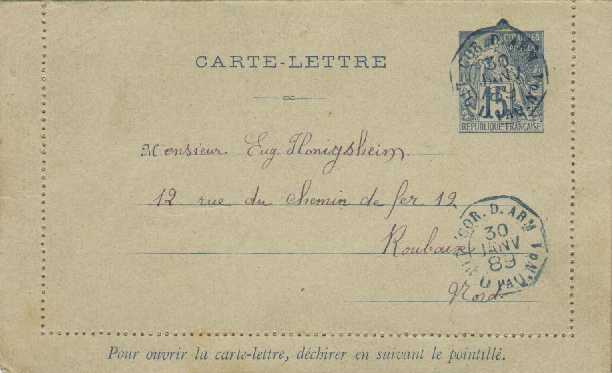 CARTE-LETTRE
15
RÉPUBLIQUE FRANÇAISE
COR. D. ARM
30
JANV
89
Monsieur Eug. Honigsheim
12 rue du Chemin de fer 12
Roubaix
Nord
COR. D. ARM
30
JANV
89
Pour ouvrir la carte-lettre, déchirer en suivant le pointillé.